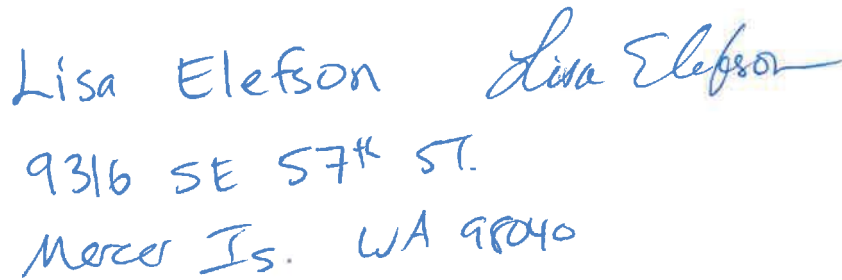 Lisa Elefson Lisa Elefson
9316 SE 57th ST.
Mercer Is. WA 98040